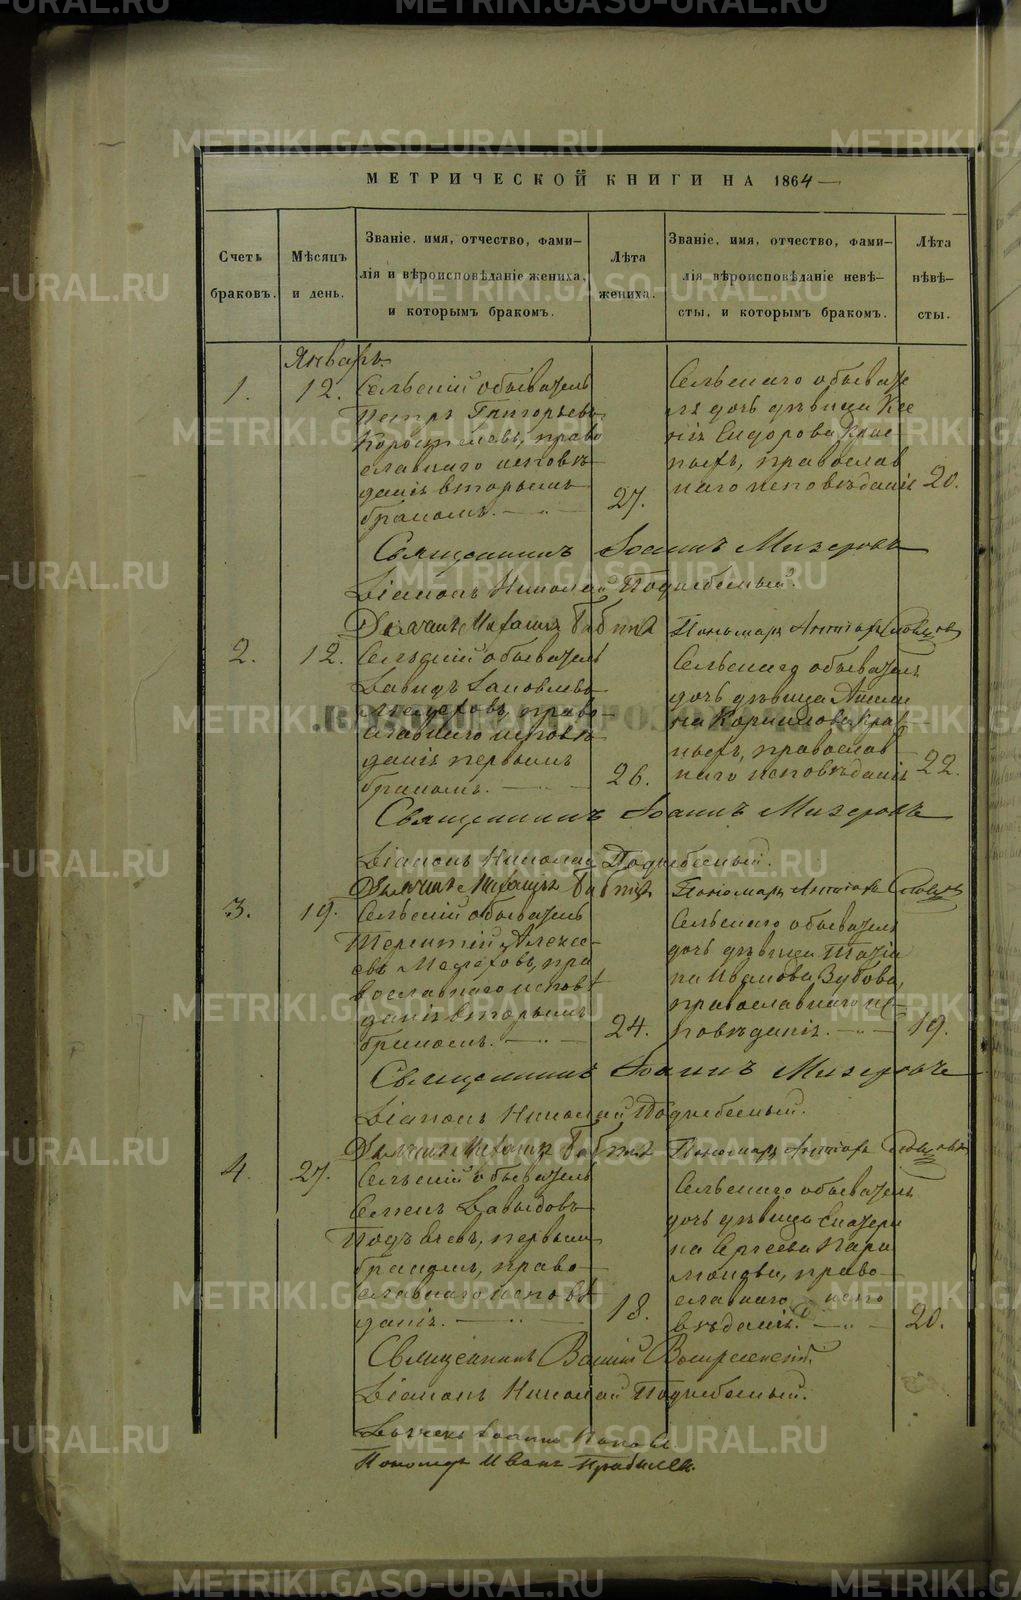 МЕТРИЧЕСКОЙ КНИГИ НА 1864
Счетъ
браковъ.
Мѣсяцъ
и день.
Званіе, имя, отчество, фами-
лія и вѣроисповѣданіе жениха,
и которымъ бракомъ.
Лѣта
жениха.
Званіе, имя, отчество, фами-
лія вѣроисповѣданіе невѣ-
сты, и которымъ бракомъ.
Лѣта
нѣвѣ-
сты.
Январь.
1.
12.
Сельскій обыватель
Петръ Григорьевъ
Коростелевъ, право
славнаго исповѣ-
данія вторымъ
бракомъ.
27.
Сельскаго обывате
ля дочь дѣвица Ксе
нія Сидорова
православ
наго исповѣданія
20.
Священникъ Іоаннъ Мизеровъ
Діаконъ Николай Поднебесный.
Дьячекъ Михаилъ Бабинъ Пономарь
2.
12.
Сельскій обыватель
Давидъ Іаковлевъ
право-
славнаго исповѣ
данія первымъ
бракомъ.
26.
Сельскаго обыватель
дочь дѣвица
на Корнилова
православ
наго исповѣданія
22.
Священникъ Іоаннъ Мизеровъ
Діаконъ Николай Поднебесный.
Дьячекъ Михаилъ Бабинъ Пономарь
3.
19.
Сельскій обыватель
Терентій Алексе-
евъ пра
вославнаго исповѣ
данія вторымъ
бракомъ.
24.
Сельскаго обывателя
дочь дѣвица Татіа
на Иванова Зубова,
православнаго ис-
повѣданія.
19.
Священникъ Іоаннъ Мизеровъ
Діаконъ Николай Поднебесный.
Дьячекъ Михаилъ Бабинъ Пономарь
4.
27.
Сельскій обыватель
Семенъ Давыдовъ
первымъ
бракомъ, право-
славнаго исповѣ
данія.
18.
Сельскаго обыватель
дочь дѣвица Екатери
на Сергеева Пара
монова, право-
славнаго испо
вѣданія.
20.
Священникъ Василій Воскресенскій.
Діаконъ Николай Поднебесный.
Дьячекъ Іоаннъ Поповъ
Пономарь Иванъ
METRIKI.GASO-URAL.RU